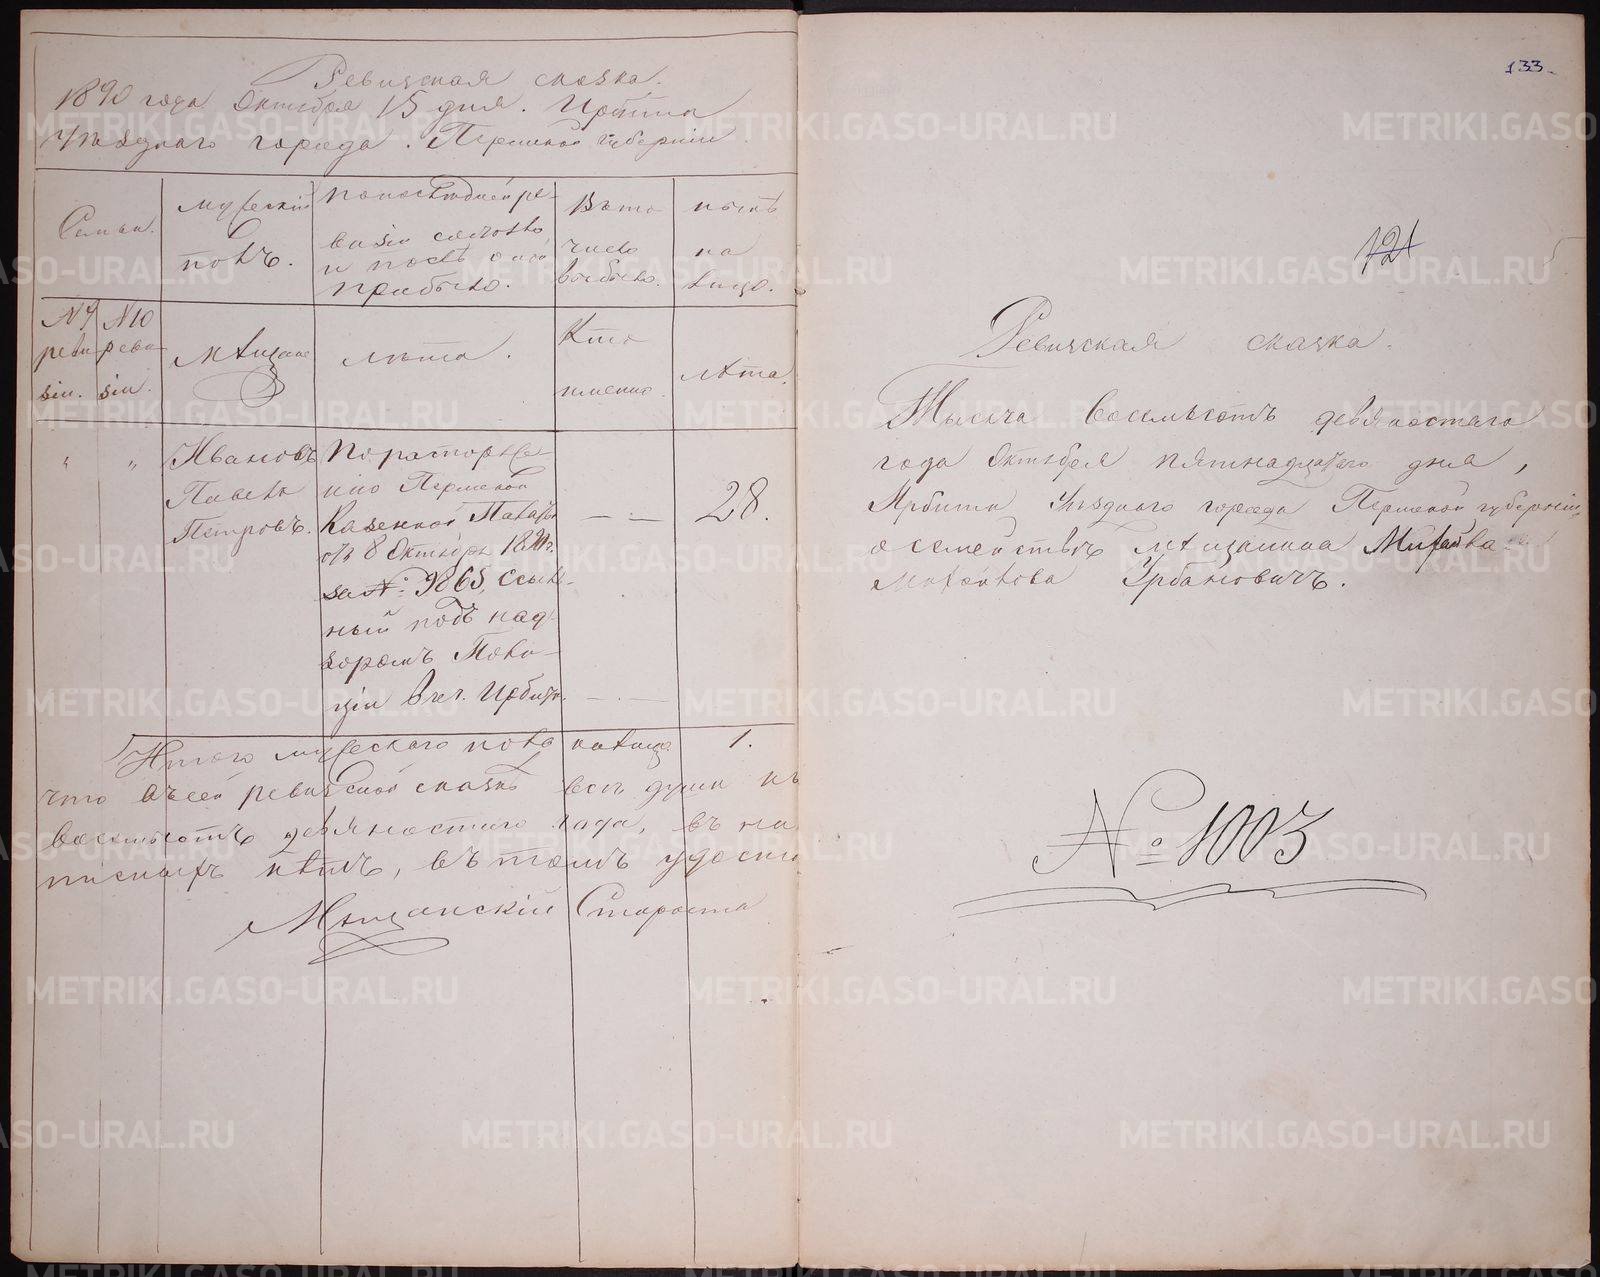 Ревизская сказка.
1890 года Октября 15 дня. Ирбита
Уѣзднаго города. Пермской губерніи
Семьи.
Мужескій
полъ.
По послѣдней ре-
визіи состояло
и послѣ оной
прибыло.
Въ то
число
выбыло.
нынѣ
на
лицо.
N 9 N 10
реви- реви-
зіи. зіи.
Мѣщане
лѣта.
Кто
именно.
лѣта.
" "
Ивановъ
Павелъ
Петровъ.
По распоряже-
нію Пермской
Казенной Палаты
отъ 8 Октября
за № 9865, ссыль-
ный подъ над-
зоромъ Поли-
ціи въ г. Ирбитѣ.
28.
Итого мужескаго пола на лицо 1.
что въ сей ревизской сказкѣ всѣ души къ
восемьсотъ девяностаго года, въ на
писныхъ лѣтъ, въ томъ удосто
Мѣщанскій Староста
133
121
Ревизская сказка.
Тысяча восемьсотъ девяностаго
года Октября пятнадцатаго дня,
Ирбита Уѣзднаго города Пермской губерніи,
о семействѣ мѣщанина
Урбановичъ.
№ 1003
METRIKI.GASO-URAL.RU